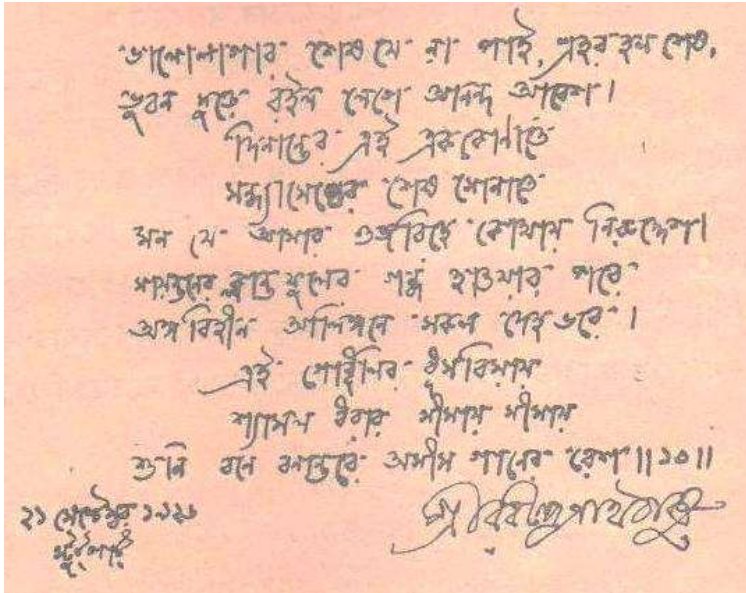 ভালোলাগার শেষ যে না পাই, প্রহর হল শেষ,
ভুবন জুড়ে রইল লেগে আনন্দ আবেশ।
দিনান্তের এই এককোণাতে
সন্ধ্যামেঘের শেষ সোনাতে
মন যে আমার গুঞ্জরিছে কোথায় নিরুদ্দেশ।
সায়ন্তনের ক্লান্ত ফুলের গন্ধ হাওয়ার পরে
অঙ্গবিহীন আলিঙ্গনে সকল দেহ ভরে।
এই গোধূলির ধূসরিমায়
শ্যামল ধরার সীমায় সীমায়
শুনি বনে বনান্তরে অসীম গানের রেশ॥১০॥
২১ সেপ্টেম্বর ১৯২৬
শ্রীরবীন্দ্রনাথ ঠাকুর